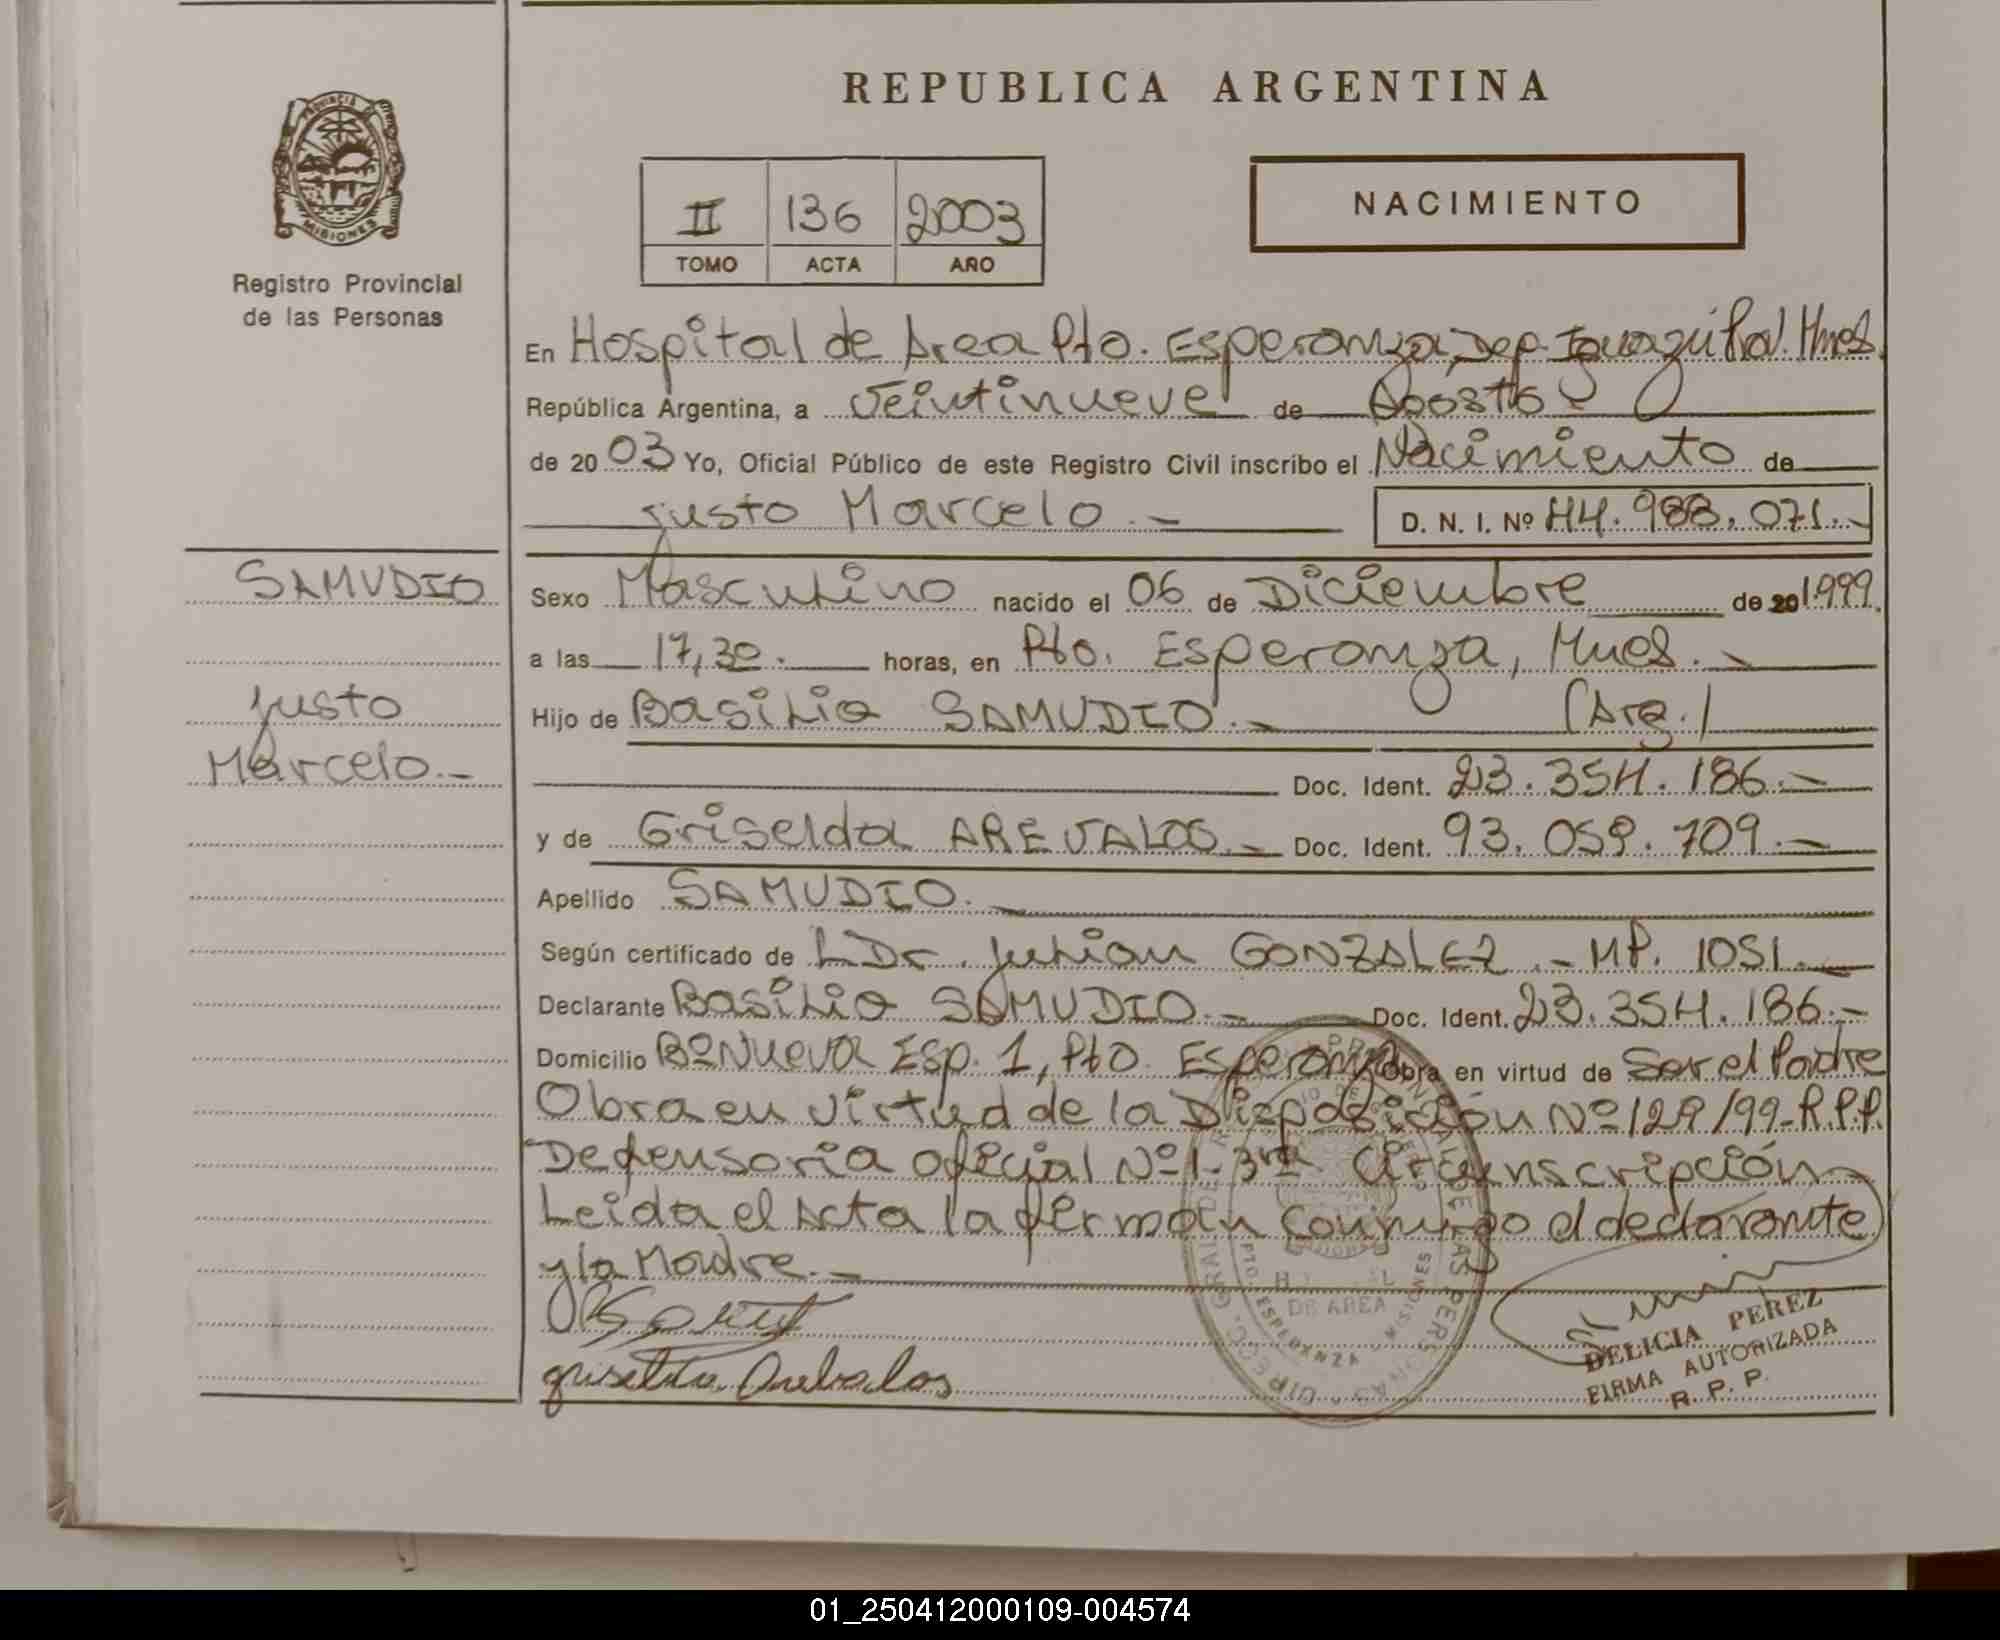 REPUBLICA ARGENTINA
PROVINCIA
MISIONES
Registro Provincial
de las Personas
II 136 2003
TOMO ACTA AÑO
NACIMIENTO
En Hospital de Area Pto. Esperanza, Dep. Iguazú Prov. Mnes.
República Argentina, a Veintinueve de Agosto
de 2003 Yo, Oficial Público de este Registro Civil inscribo el Nacimiento de
Justo Marcelo.- D. N. I. Nº 44.988.071.-
SAMUDIO
Justo
Marcelo.-
Sexo Masculino nacido el 06 de Diciembre de 20 1999.
a las 17,30. horas, en Pto. Esperanza, Mnes.-
Hijo de Basilio SAMUDIO.- (Arg.)
Doc. Ident. 23.354.186.-
y de Griselda AREVALOS.- Doc. Ident. 93.059.709.-
Apellido SAMUDIO.-
Según certificado de Dr. Julian GONZALEZ.- MP. 1051.-
Declarante Basilio SAMUDIO.- Doc. Ident. 23.354.186.-
Domicilio Bº Nueva Esp. 1, Pto. Esperanza Obra en virtud de Ser el Padre
Obra en virtud de la Disposición Nº 129/99-R.P.P.
Defensoria oficial Nº 1-3ra Circunscripción
Leida el Acta la firman conmigo el declarante
y la Madre.-
Griselda Arebalos
DELICIA PEREZ
FIRMA AUTORIZADA
R. P. P.
DE AREA
PTO. ESPERANZA - MISIONES
01_250412000109-004574